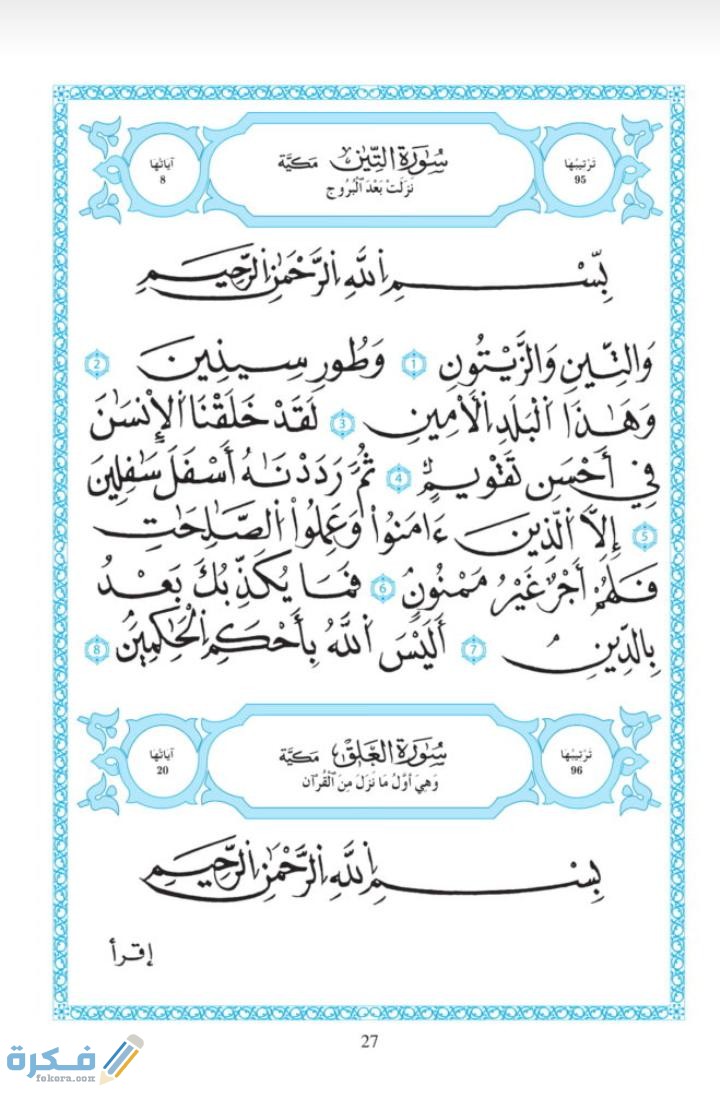 سُورَةُ التِّينِ مَكِيَّة
نَزَلَتْ بَعْدَ الْبُرُوج
تَرْتِيبُهَا
95
آيَاتُهَا
8
بِسْمِ اِ۬للَّهِ اِ۬لرَّحْمَٰنِ اِ۬لرَّحِيمِ
وَالتِّينِ وَالزَّيْتُونِ 1 وَطُورِ سِينِينَ 2
وَهَٰذَا اَ۬لْبَلَدِ اِ۬لَامِينِ 3 لَقَدْ خَلَقْنَا اَ۬لِانْسَٰنَ
فِي أَحْسَنِ تَقْوِيمٍ 4 ثُمَّ رَدَدْنَٰهُ أَسْفَلَ سَٰفِلِينَ
5 إِلَّا اَ۬لذِينَ ءَامَنُواْ وَعَمِلُواْ اُ۬لصَّٰلِحَٰتِ
فَلَهُمُ أَجْرٌ غَيْرُ مَمْنُونٍ 6 فَمَا يُكَذِّبُكَ بَعْدُ
بِالدِّينِ 7 أَلَيْسَ اَ۬للَّهُ بِأَحْكَمِ اِ۬لْحَٰكِمِينَ 8
سُورَةُ الْعَلَقِ مَكِيَّة
وَهِيَ أَوَّلُ مَا نَزَلَ مِنَ الْقُرْآن
تَرْتِيبُهَا
96
آيَاتُهَا
20
بِسْمِ اِ۬للَّهِ اِ۬لرَّحْمَٰنِ اِ۬لرَّحِيمِ
إقرأ
27
فكرة
fokora.com